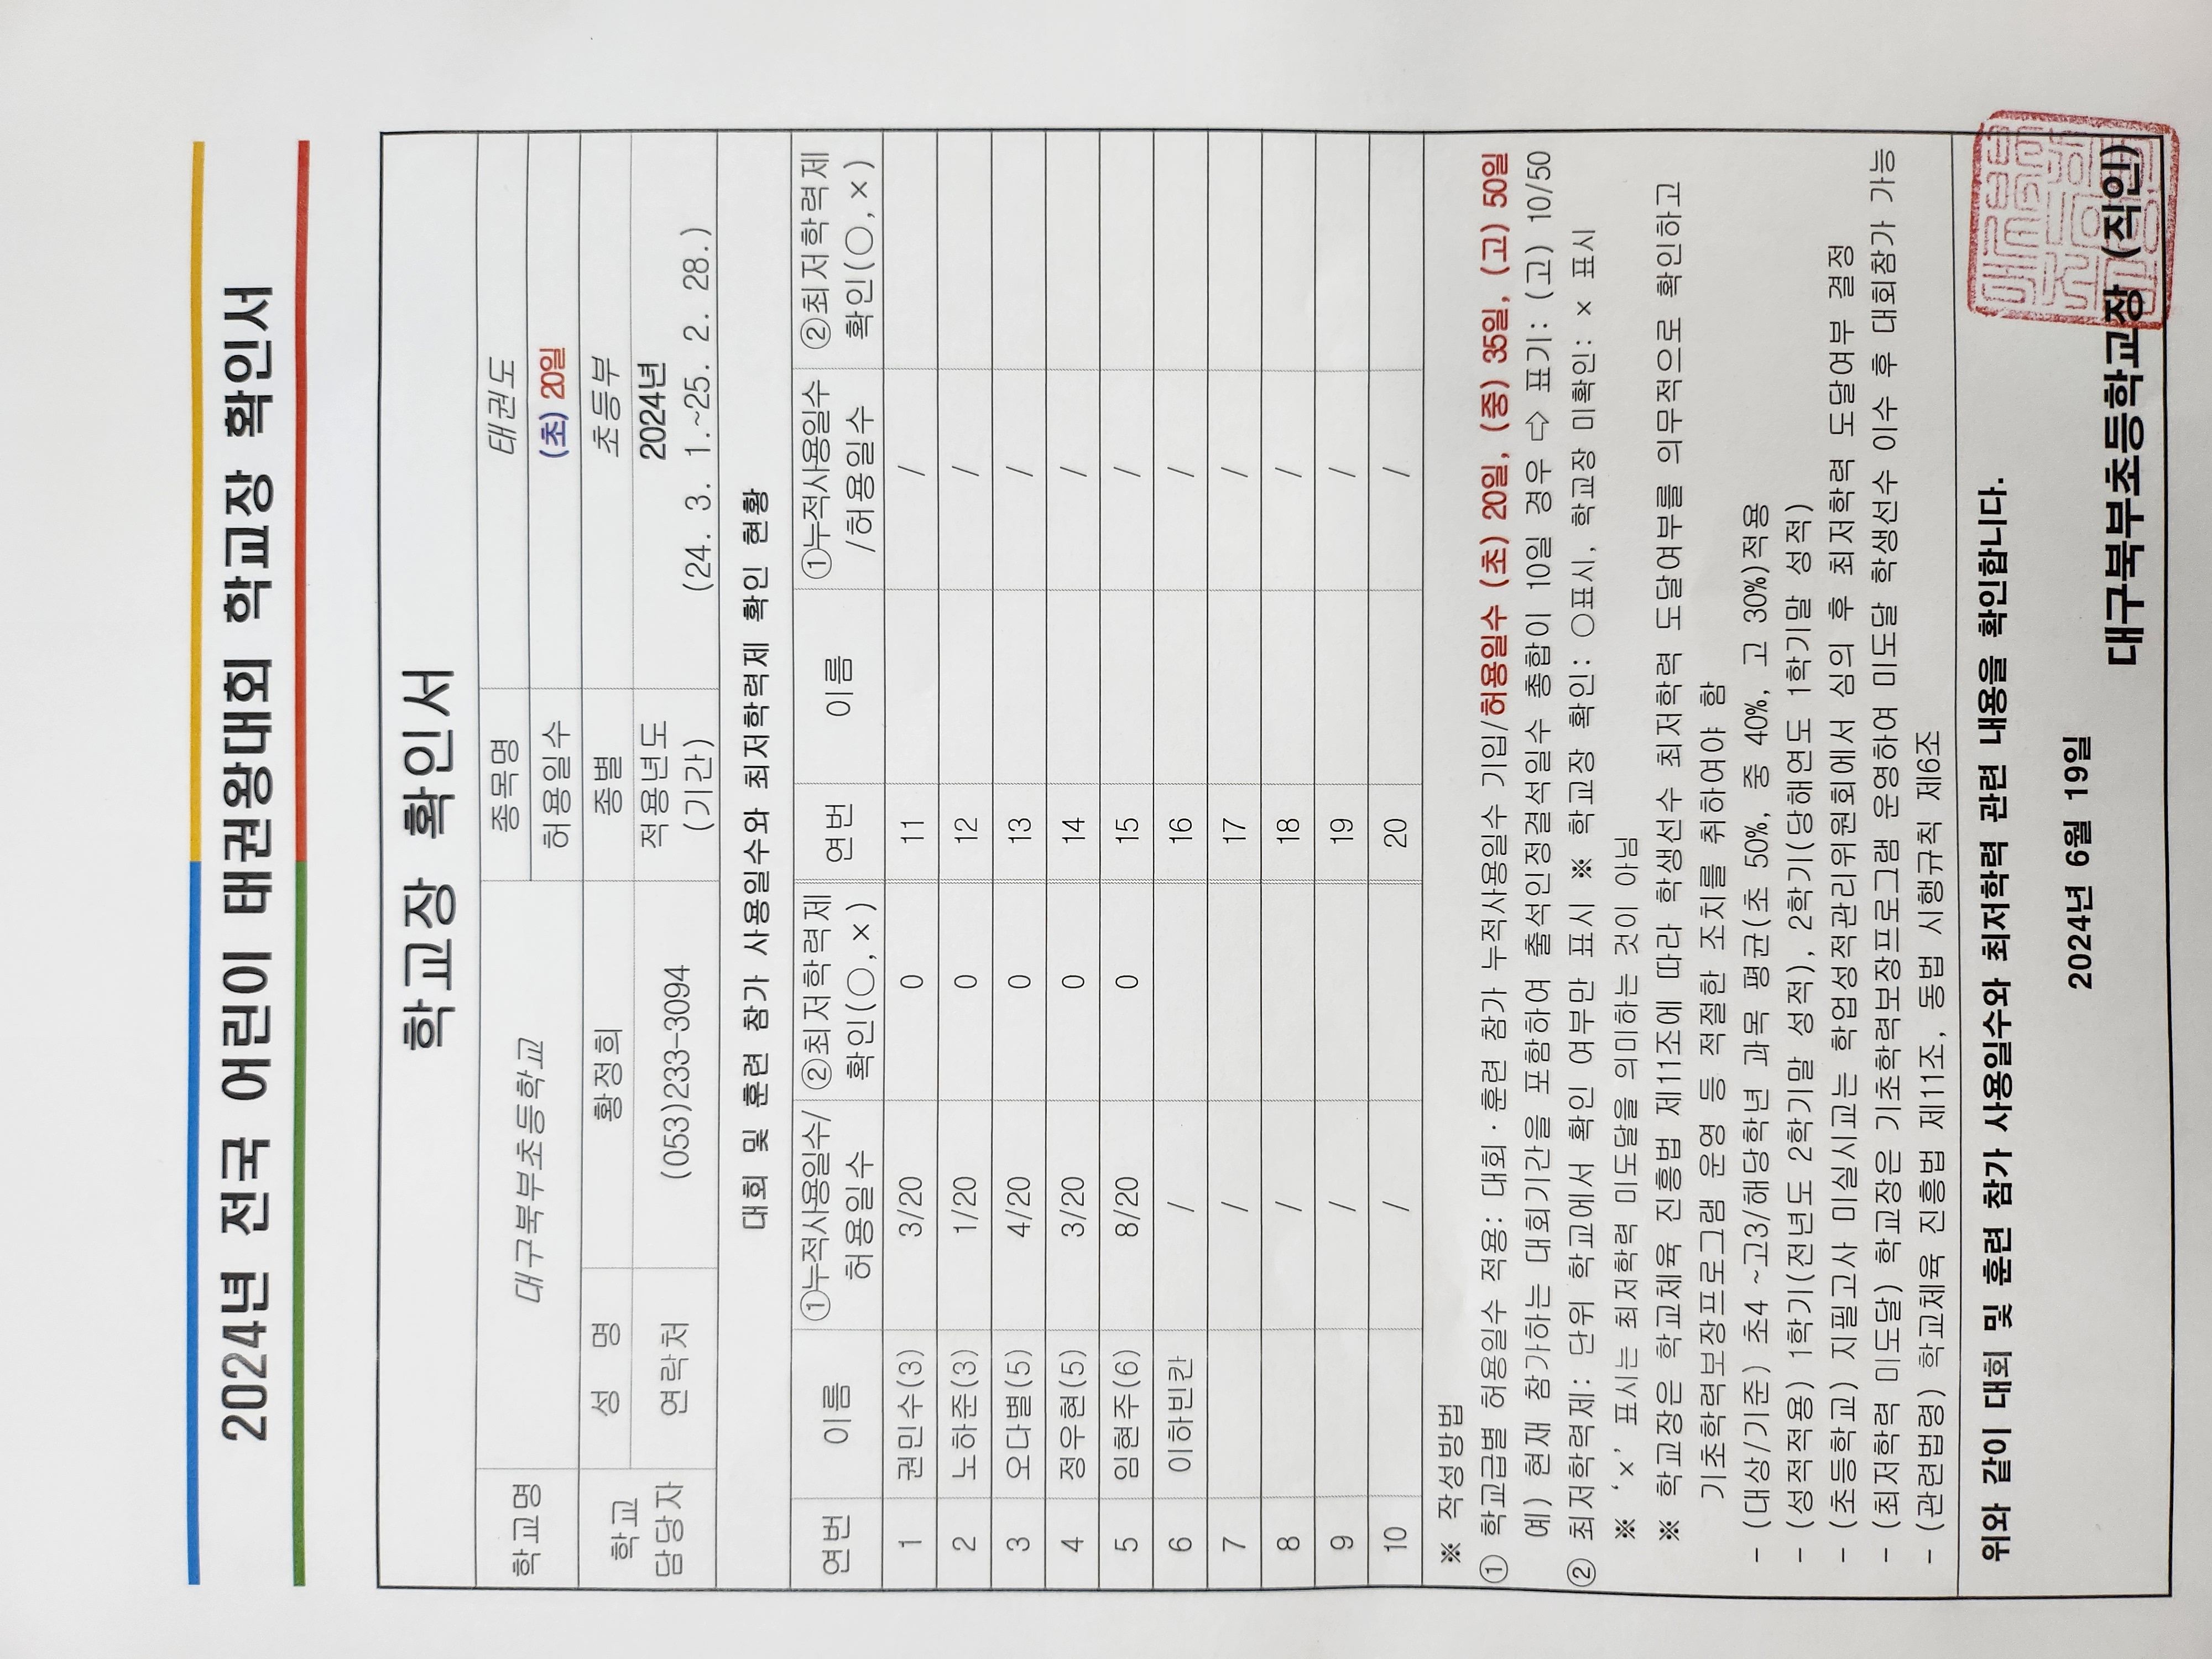 2024년 전국 어린이 태권왕대회 학교장 확인서
학교장 확인서
학교명 대구북부초등학교 종목명 태권도
허용일수 (초) 20일
학교 담당자 성 명 황정희 종별 초등부
연락처 (053)233-3094 적용년도 (기간) 2024년 (24. 3. 1.~25. 2. 28.)
대회 및 훈련 참가 사용일수와 최저학력제 확인 현황
연번 이름 ①누적사용일수/허용일수 ②최저학력제 확인(○,×) 연번 이름 ①누적사용일수/허용일수 ②최저학력제 확인(○,×)
1 권민수(3) 3/20 0 11 /
2 노하준(3) 1/20 0 12 /
3 오다별(5) 4/20 0 13 /
4 정우현(5) 3/20 0 14 /
5 임현주(6) 8/20 0 15 /
6 이하빈칸 / 16 /
7 / 17 /
8 / 18 /
9 / 19 /
10 / 20 /
※ 작성방법
① 학교급별 허용일수 적용: 대회·훈련 참가 누적사용일수 기입/허용일수 (초) 20일, (중) 35일, (고) 50일
예) 현재 참가하는 대회기간을 포함하여 출석인정결석일수 총합이 10일 경우 ⇨ 표기: (고) 10/50
② 최저학력제: 단위 학교에서 확인 여부만 표시 ※ 학교장 확인: ○표시, 학교장 미확인: × 표시
※ '×' 표시는 최저학력 미도달을 의미하는 것이 아님
※ 학교장은 학교체육 진흥법 제11조에 따라 학생선수 최저학력 도달여부를 의무적으로 확인하고
기초학력보장프로그램 운영 등 적절한 조치를 취하여야 함
- (대상/기준) 초4 ~고3/해당학년 과목 평균(초 50%, 중 40%, 고 30%)적용
- (성적적용) 1학기(전년도 2학기말 성적), 2학기(당해연도 1학기말 성적)
- (초등학교) 지필고사 미실시교는 학업성적관리위원회에서 심의 후 최저학력 도달여부 결정
- (최저학력 미도달) 학교장은 기초학력보장프로그램 운영하여 미도달 학생선수 이수 후 대회참가 가능
- (관련법령) 학교체육 진흥법 제11조, 동법 시행규칙 제6조
위와 같이 대회 및 훈련 참가 사용일수와 최저학력 관련 내용을 확인합니다.
2024년 6월 19일
대구북부초등학교장 (직인)